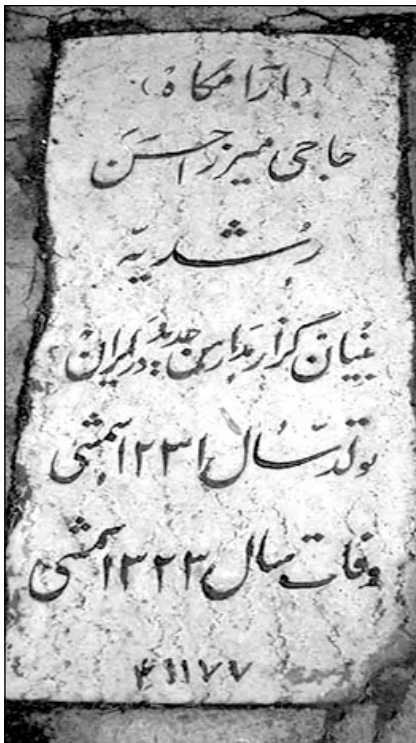 (آرامگاه)
حاجی میرزا حسن
رشدیه
بنیان گزار مدارس جدید در ایران
تولد سال ۱۲۳۱ شمسی
وفات سال ۱۳۲۳ شمسی